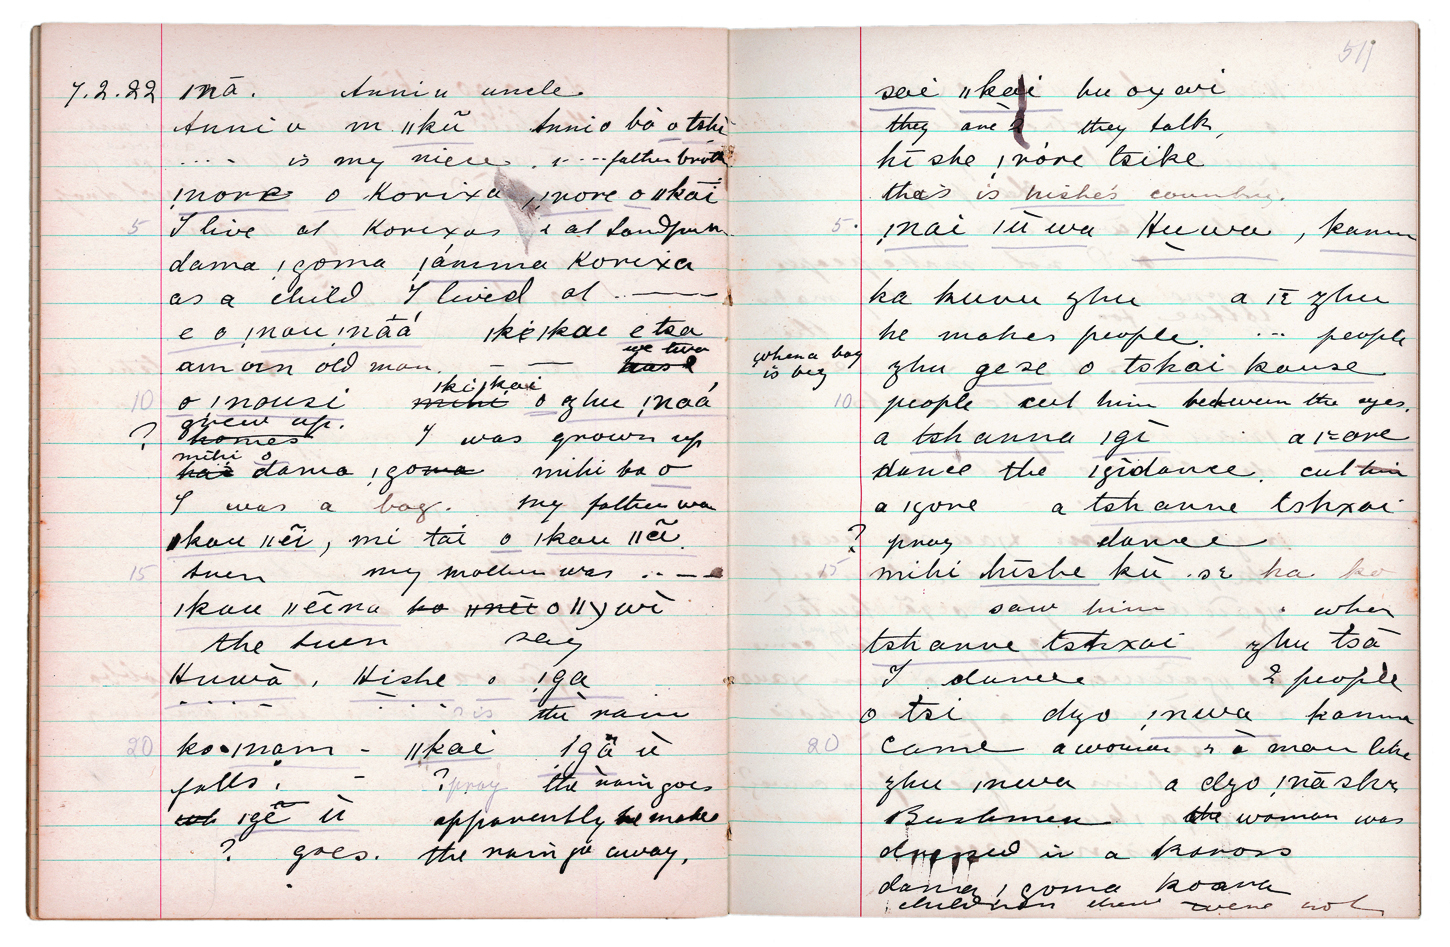 7.2.22 ǀnā. Anniu uncle.
Anniu m ǁkū Annio bȯ o tshi
.... is my niece. .... father broth
ǃnore o Korixa, ǃnore o ǁkai
5 I live at Korixas at
dama ǃgoma ǃámma Korixa
as a child I lived at .. ——
e o ǃnou ǃnāá ǀkeǀkae e tsa
am an old man. — — we two
ǀkiǀkai
10 o ǃnousi mihi o zhu ǃnaá
grew up.
? homes I was grown up
mihi o
dama ǃgoma mihi ba o
I was a boy. my father was
ǀkau ǁẽi, mi tai o ǀkau ǁẽi.
15 tuen my mother was .. —
ǀkau ǁẽina o
the tuen say
Huwā, Hishe o ǃga
is the rain
20 ko ǃnam - ǁkai ǃgā ù
falls. - ? pray the rain goes
ǃgẽ ù apparently he makes
? goes. the rain go away.
519
sei ǁkai hu oxai
they are they talk,
hi she ǃnóre tsike
this is hishe's country.
5. ǃnai ǀū wa Huwa, kamm
ka kuru zhu a zhu
he makes people. ... people
when a boy
is big
zhu gese o tshai kause
10 people cut him between the eyes.
a tshanna ǃgī a
dance the ǃgidance. cut him
a ǃgore a tshanne tshxai
? pray dance
15 mihi hishe kū se ka ko
saw him when
tshanne tshxai zhu tsā
I dance 2 people
o tsi dzo ǃnwa kamma
20 came a woman & a man like
zhu ǃnwa a dzo
Bushmen the woman was
dressed in a kaross
dama ǃgoma koara
children there were not